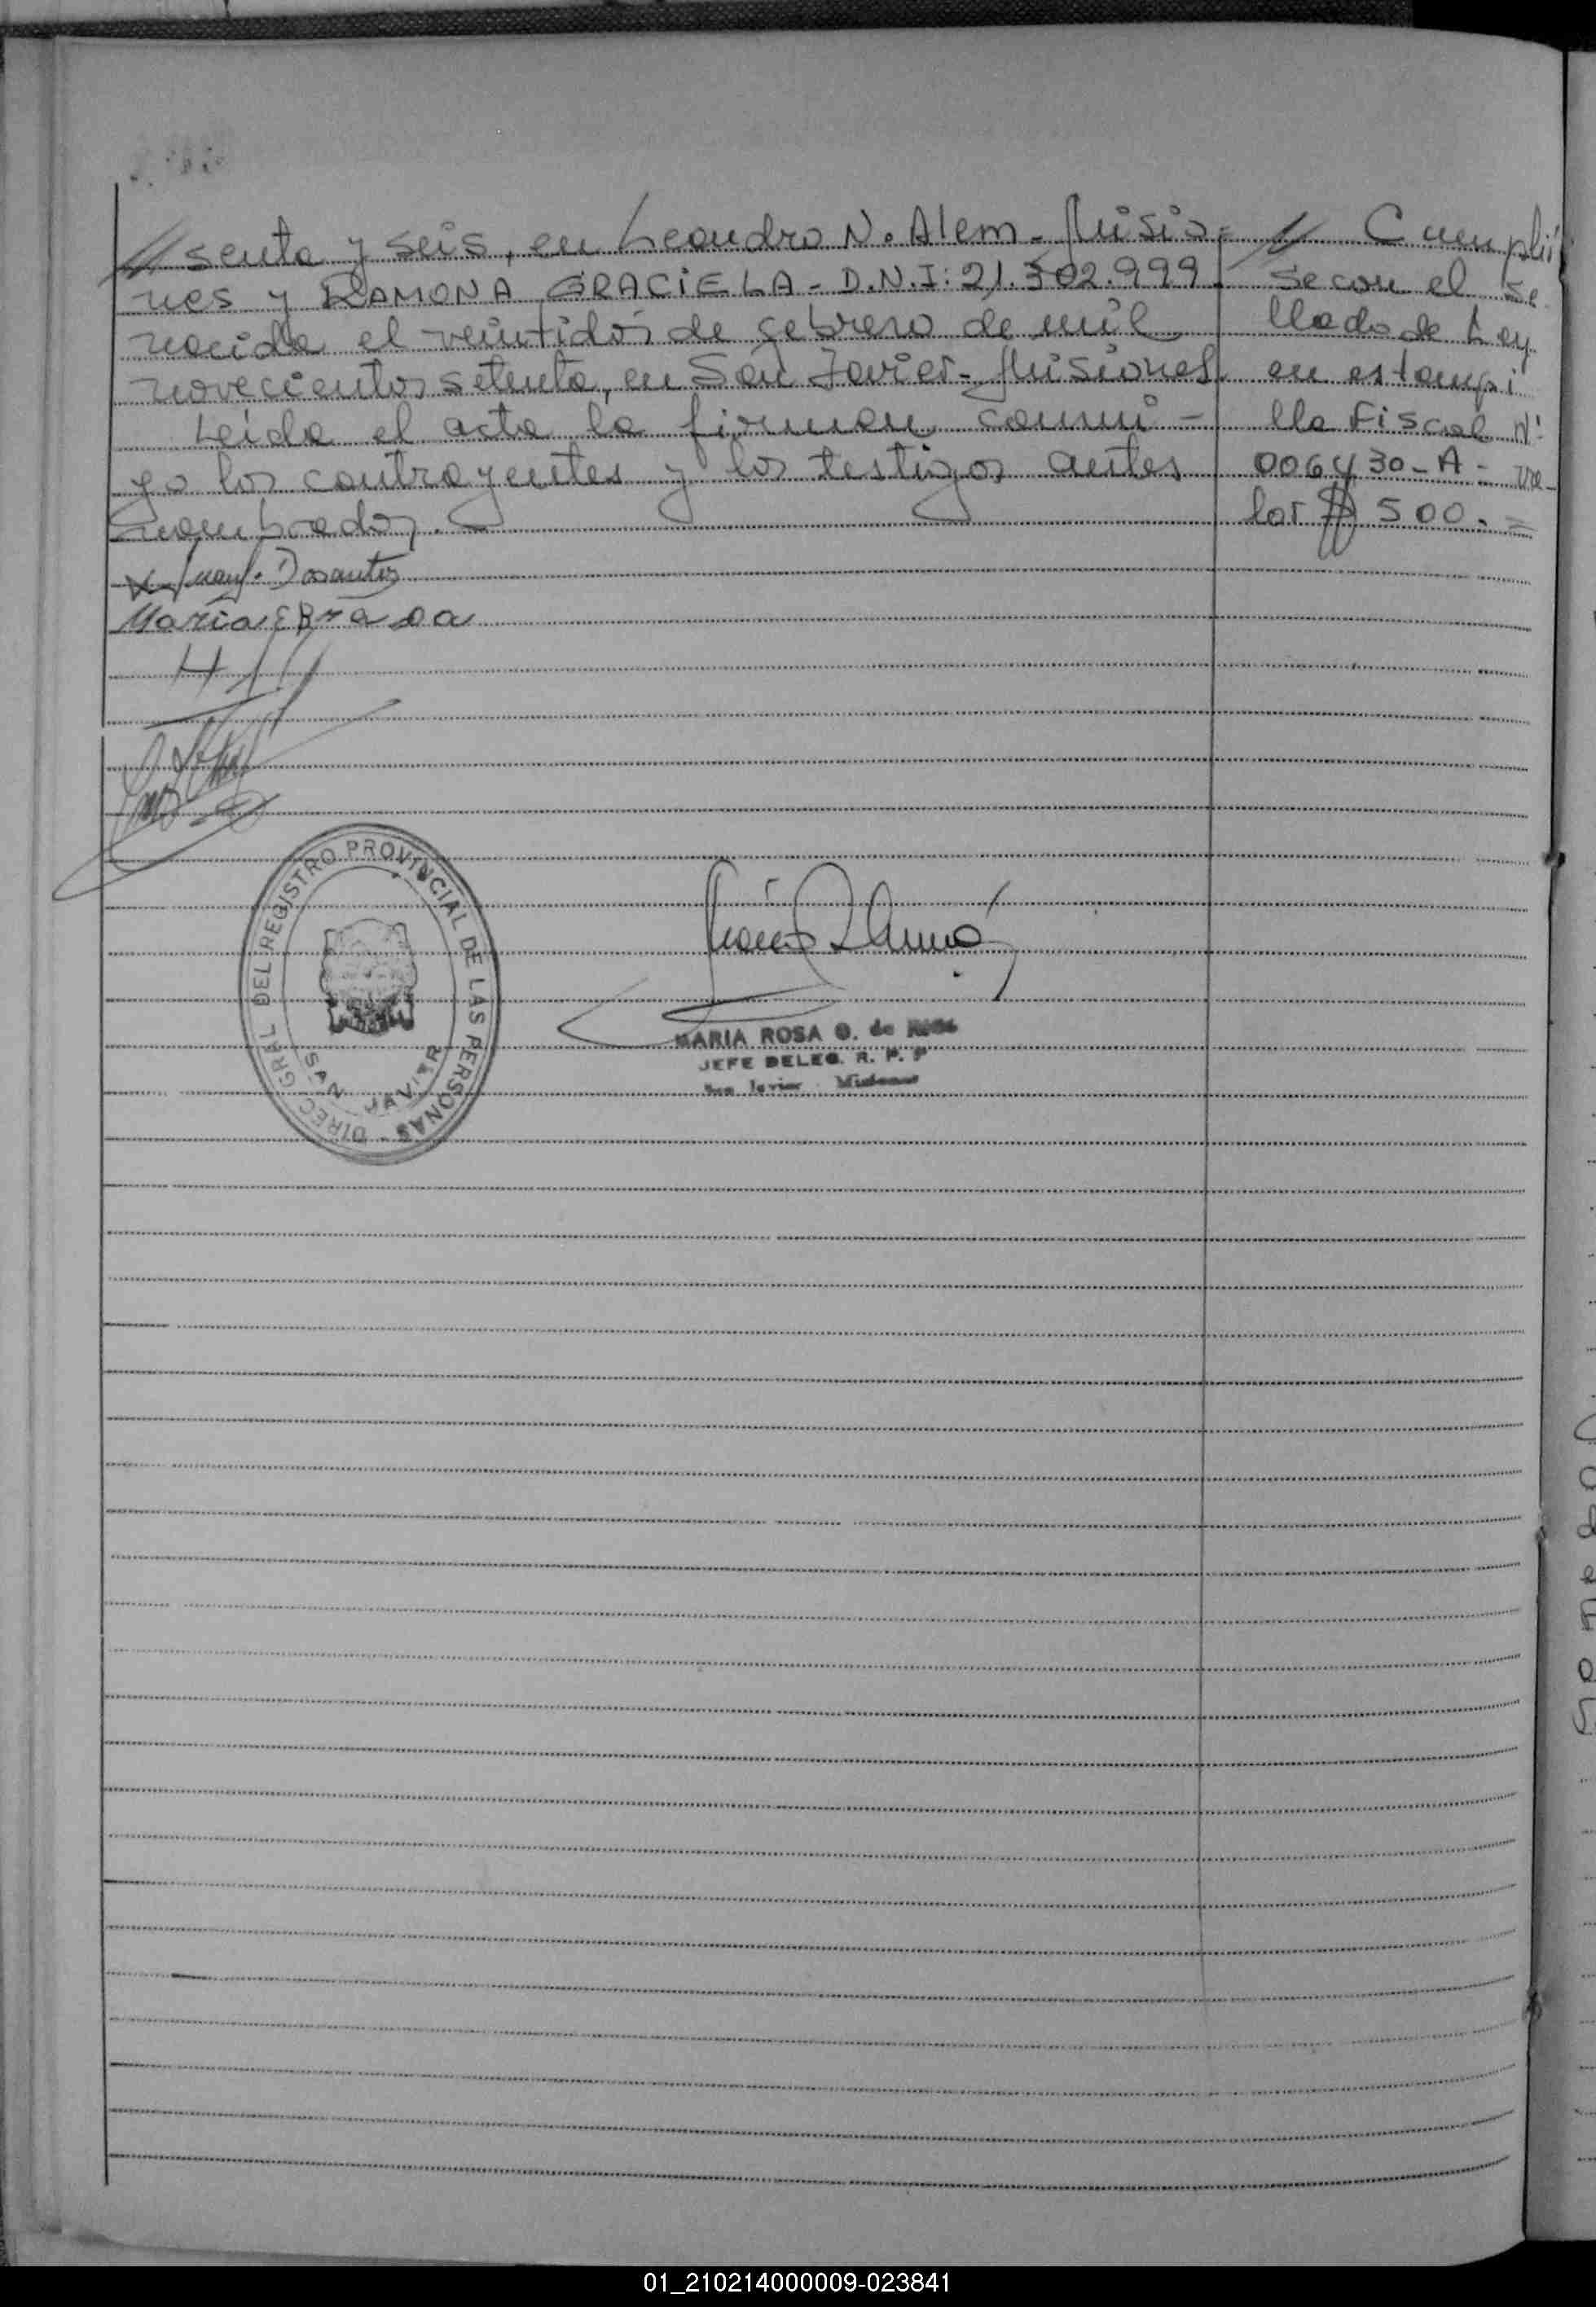 // senta y seis, en Leandro N. Alem - Misio-
nes y RAMONA GRACIELA - D.N.I: 21.302.999
nacida el veintidós de febrero de mil
novecientos setenta, en San Javier - Misiones
Leída el acta la firman conmi-
go los contrayentes y los testigos antes
nombrados.
// Cumplió
se con el se
llado de Ley
en estampi
lla Fiscal Nº
006430-A- va-
lor $ 500.=
Juan J. Dosantos
Maria E Brada
DIREC. GRAL DEL REGISTRO PROVINCIAL DE LAS PERSONAS
SAN JAVIER
MARIA ROSA G. de
JEFE DELEG. R. P. P
San Javier - Misiones
01_210214000009-023841